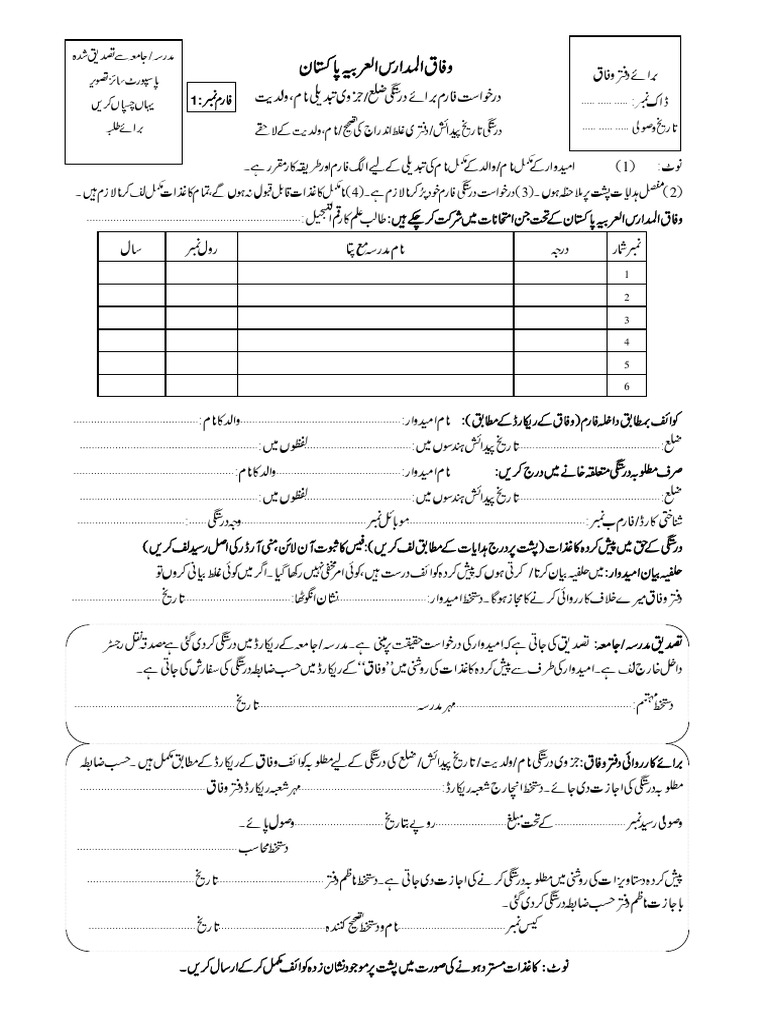 وفاق المدارس العربیہ پاکستان
درخواست فارم برائے درستگی ضلع/جزوی تبدیلی نام، ولدیت
درستگی تاریخ پیدائش/دفتری غلط اندراج کی تصحیح/نام، ولدیت کے لاحقے
برائے دفتر وفاق
ڈاک نمبر: ..... ..... .....
تاریخ وصولی ..... ..... .....
فارم نمبر: 1
مدرسہ/جامعہ سے تصدیق شدہ
پاسپورٹ سائز تصویر
یہاں چسپاں کریں
برائے طلبہ
نوٹ: (1) امیدوار کے مکمل نام/والد کے مکمل نام کی تبدیلی کے لیے الگ فارم اور طریقہ کار مقرر ہے۔
(2) مفصل ہدایات پشت پر ملاحظہ ہوں۔ (3) درخواست درستگی فارم خود پُر کرنا لازم ہے۔ (4) نامکمل کاغذات قابل قبول نہ ہوں گے، تمام کاغذات مکمل لف کرنا لازم ہیں۔
وفاق المدارس العربیہ پاکستان کے تحت جن امتحانات میں شرکت کرچکے ہیں: طالب علم کا رقم التسجیل: ..........
نمبر شمار درجہ نام مدرسہ مع پتا رول نمبر سال
1
2
3
4
5
6
کوائف بمطابق داخلہ فارم (وفاق کے ریکارڈ کے مطابق): نام امیدوار: .......... والد کا نام: ..........
ضلع: .......... تاریخ پیدائش ہندسوں میں: .......... لفظوں میں: ..........
صرف مطلوبہ درستگی متعلقہ خانے میں درج کریں: نام امیدوار: .......... والد کا نام: ..........
ضلع: .......... تاریخ پیدائش ہندسوں میں: .......... لفظوں میں: ..........
شناختی کارڈ/فارم ب نمبر: .......... موبائل نمبر .......... وجہ درستگی: ..........
درستگی کے حق میں پیش کردہ کاغذات (پشت پر درج ہدایات کے مطابق لف کریں): فیس کا ثبوت آن لائن، منی آرڈر کی اصل رسید لف کریں)
حلفیہ بیان امیدوار: میں حلفیہ بیان کرتا/کرتی ہوں کہ پیش کردہ کوائف درست ہیں، کوئی امر مخفی نہیں رکھا گیا۔ اگر میں کوئی غلط بیانی کروں تو
دفتر وفاق میرے خلاف کارروائی کرنے کا مجاز ہوگا۔ دستخط امیدوار: .......... نشان انگوٹھا: .......... تاریخ ..........
تصدیق مدرسہ/جامعہ: تصدیق کی جاتی ہے کہ امیدوار کی درخواست حقیقت پر مبنی ہے۔ مدرسہ/جامعہ کے ریکارڈ میں درستگی کردی گئی ہے مصدقہ نقل رجسٹر
داخل خارج لف ہے۔ امیدوار کی طرف سے پیش کردہ کاغذات کی روشنی میں ”وفاق“ کے ریکارڈ میں حسب ضابطہ درستگی کی سفارش کی جاتی ہے۔
دستخط مہتمم: .......... مہر مدرسہ .......... تاریخ ..........
برائے کارروائی دفتر وفاق: جزوی درستگی نام/ولدیت/تاریخ پیدائش/ضلع کی درستگی کے لیے مطلوبہ کوائف وفاق کے ریکارڈ کے مطابق مکمل ہیں۔ حسب ضابطہ
مطلوبہ درستگی کی اجازت دی جائے۔ دستخط انچارج شعبہ ریکارڈ: .......... مہر شعبہ ریکارڈ دفتر وفاق ..........
وصولی رسید نمبر .......... کے تحت مبلغ .......... روپے بتاریخ .......... وصول پائے۔
دستخط محاسب ..........
پیش کردہ دستاویزات کی روشنی میں مطلوبہ درستگی کرنے کی اجازت دی جاتی ہے۔ دستخط ناظم دفتر .......... تاریخ ..........
با اجازت ناظم دفتر حسب ضابطہ درستگی کردی گئی۔
کیس نمبر .......... نام و دستخط تصحیح کنندہ .......... تاریخ ..........
نوٹ: کاغذات مسترد ہونے کی صورت میں پشت پر موجود نشان زدہ کوائف مکمل کرکے ارسال کریں۔